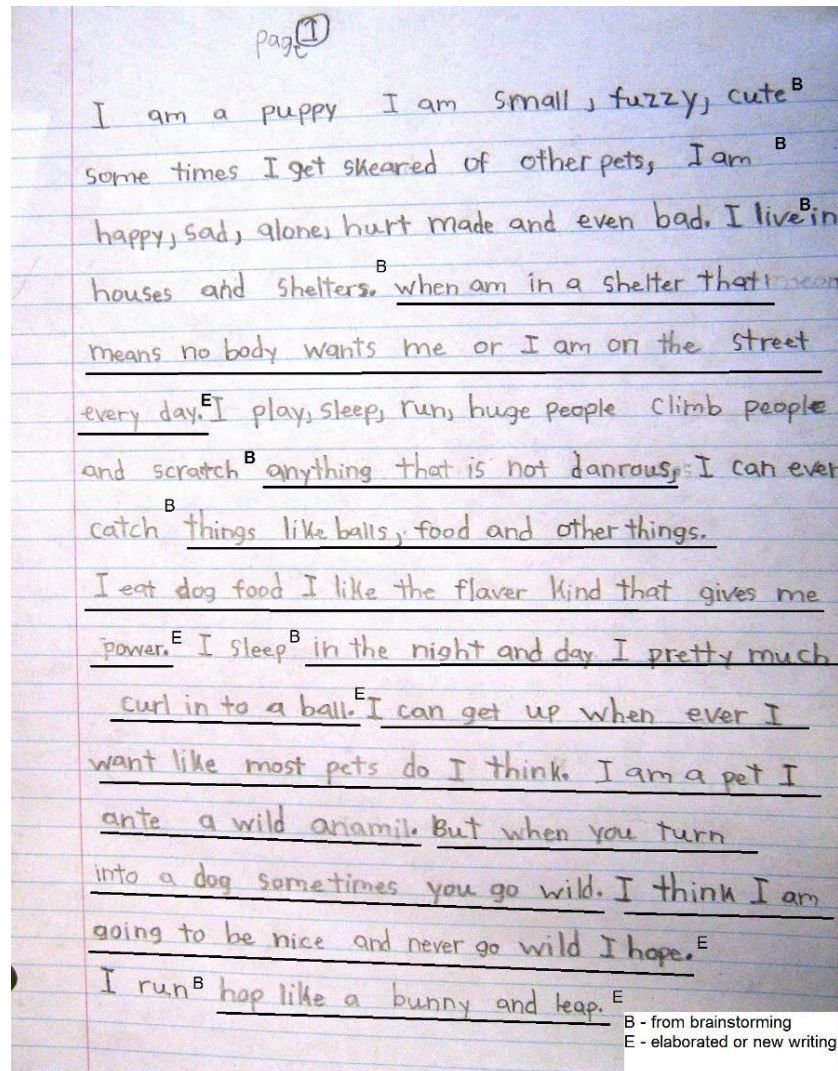 page 1
I am a puppy I am small, fuzzy, cute B
some times I get skeared of other pets, I am B
happy, sad, alone, hurt made and even bad. I live B in
houses and shelters. B when am in a shelter that mean
means no body wants me or I am on the street
every day. E I play, sleep, run, huge people climb people
and scratch B anything that is not danrous, I can ever
catch B things like balls, food and other things.
I eat dog food I like the flaver kind that gives me
power. E I sleep B in the night and day I pretty much
curl in to a ball. E I can get up when ever I
want like most pets do I think. I am a pet I
ante a wild anamil. But when you turn
into a dog sometimes you go wild. I think I am
going to be nice and never go wild I hope. E
I run B hop like a bunny and leap. E
B - from brainstorming
E - elaborated or new writing